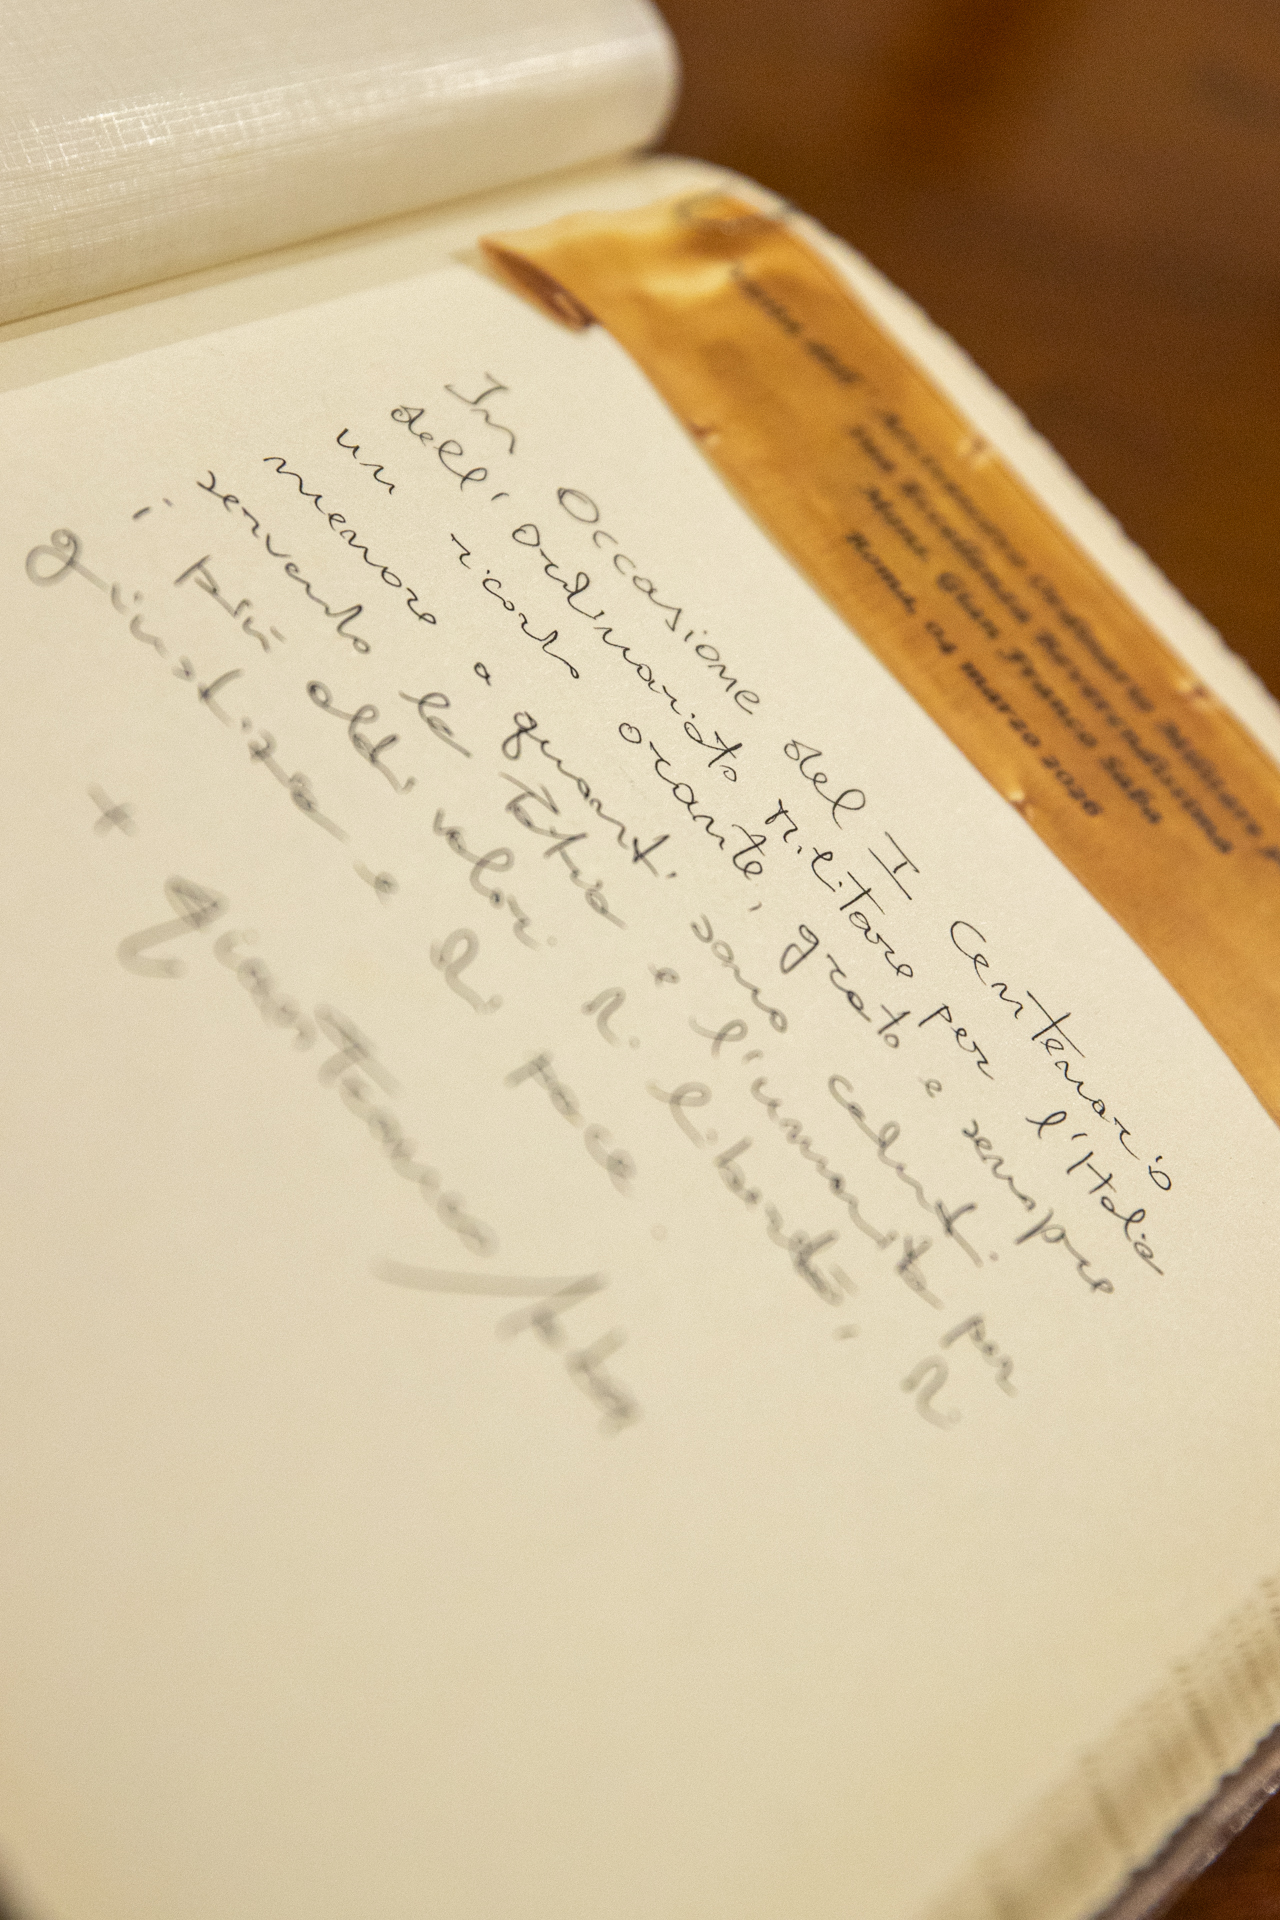 dell' Arcivescovo Ordinario Militare
Sua Eccellenza Reverendissima
Mons. Gian Franco Saba
Roma, 04 marzo 2026
In Occasione del I Centenario
dell'Ordinariato Militare per l'Italia
un ricordo orante, grato e sempre
memore a quanti sono caduti
servendo la Patria e l'umanità per
i più alti valori di libertà, di
giustizia e di pace.
+ Gian Franco Saba